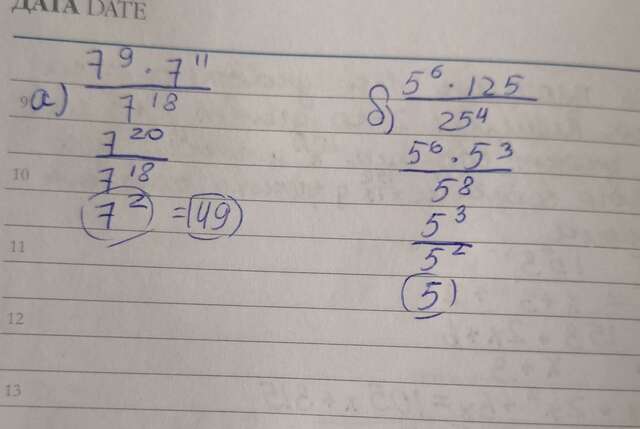 ДАТА DATE
9
а) 7^9 · 7^11 / 7^18
7^20 / 7^18
10
7^2 = 49
11
12
13
б) 5^6 · 125 / 25^4
5^6 · 5^3 / 5^8
5^3 / 5^2
5